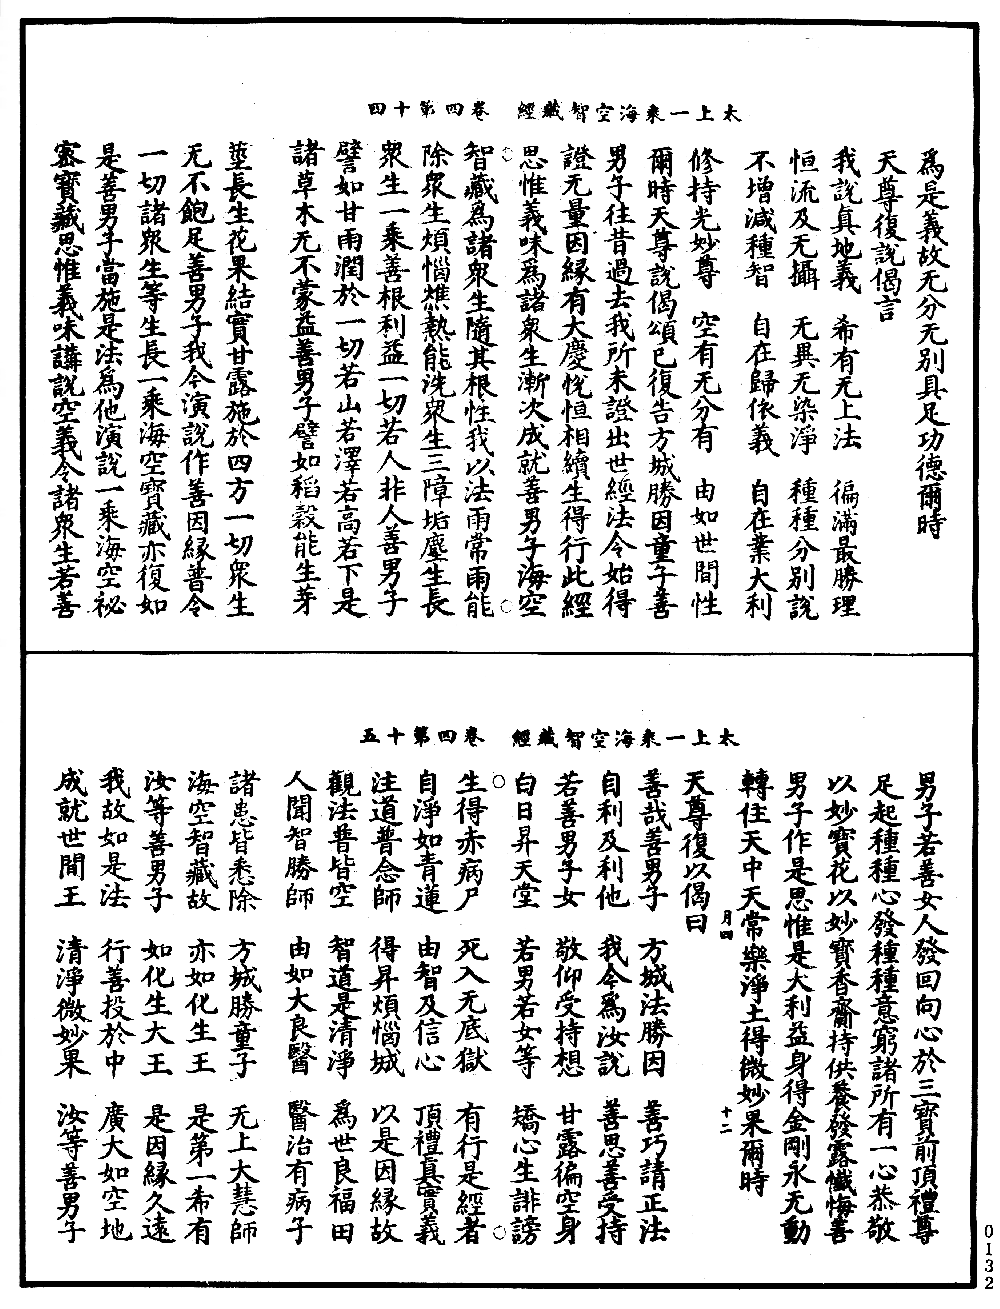 太上一乘海空智藏經　卷四第十四
爲是義故无分无別具足功德爾時
天尊復說偈言
我說真地義　希有无上法　徧滿最勝理
恒流及无攝　无異无染淨　種種分別說
不增減種智　自在歸依義　自在業大利
修持光妙尊　空有无分有　由如世間性
爾時天尊說偈頌已復告方城勝因童子善
男子往昔過去我所未證出世經法今始得
證无量因緣有大慶恱恒相續生得行此經
思惟義味爲諸衆生漸次成就善男子海空
智藏爲諸衆生隨其根性我以法雨常雨能
除衆生煩惱燋熱能洗衆生三障垢塵生長
衆生一乘善根利益一切若人非人善男子
譬如甘雨潤於一切若山若澤若高若下是
諸草木无不蒙益善男子譬如稻穀能生芽
莖長生花果結實甘露施於四方一切衆生
无不飽足善男子我今演說作善因緣普令
一切諸衆生等生長一乘海空寶藏亦復如
是善男子當施是法爲他演說一乘海空祕
密寶藏思惟義味講說空義令諸衆生若善
太上一乘海空智藏經　卷四第十五
男子若善女人發回向心於三寶前頂禮尊
足起種種心發種種意窮諸所有一心恭敬
以妙寶花以妙寶香齋持供養發露懺悔善
男子作是思惟是大利益身得金剛永无動
轉住天中天常樂淨土得微妙果爾時
月四　十二
天尊復以偈曰
善哉善男子　方城法勝因　善巧請正法
自利及利他　我今爲汝說　善思善受持
若善男子女　敬仰受持想　甘露徧空身
白日昇天堂　若男若女等　矯心生誹謗
生得赤病尸　死入无底獄　有行是經者
自淨如青蓮　由智及信心　頂禮真實義
注道普念師　得昇煩惱城　以是因緣故
觀法普皆空　智道是清淨　爲世良福田
人聞智勝師　由如大良醫　醫治有病子
諸患皆悉除　方城勝童子　无上大慧師
海空智藏故　亦如化生王　是第一希有
汝等善男子　如化生大王　是因緣久遠
我故如是法　行善投於中　廣大如空地
成就世間王　清淨微妙果　汝等善男子
0132